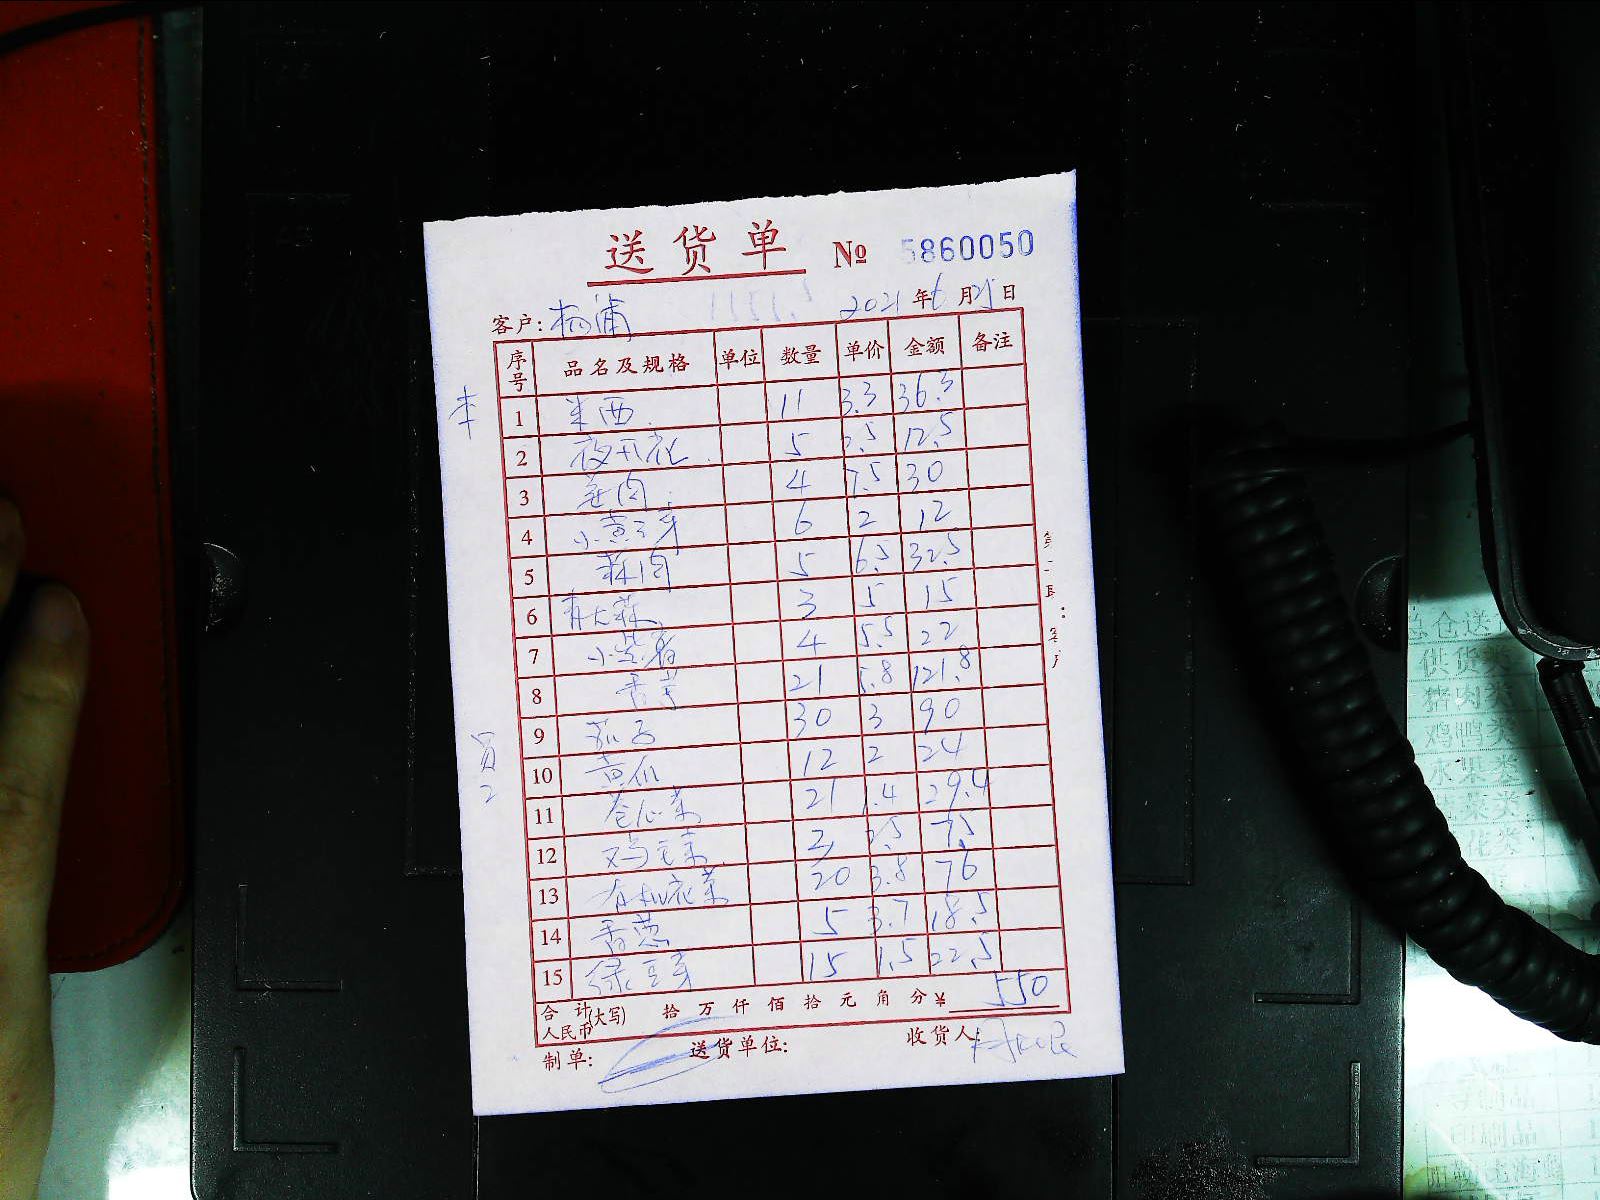 送货单 № 5860050
客户: 杨浦 2021年6月25日
序号 品名及规格 单位 数量 单价 金额 备注
1 米西 11 3.3 36.3
2 夜开花 5 2.5 12.5
3 姜肉 4 7.5 30
4 小黄豆芽 6 2 12
5 蒜肉 5 6.5 32.5
6 青大蒜 3 5 15
7 4 5.5 22
8 香芹 21 5.8 121.8
9 茄子 30 3 90
10 黄瓜 12 2 24
11 卷心菜 21 1.4 29.4
12 鸡毛菜 3 2.5 7.5
13 有机花菜 20 3.8 76
14 香葱 5 3.7 18.5
15 绿豆芽 15 1.5 22.5
合计人民币(大写) 拾 万 仟 佰 拾 元 角 分 ¥ 550
制单: 送货单位: 收货人:
供货类
猪肉类
鸡鸭类
水果类